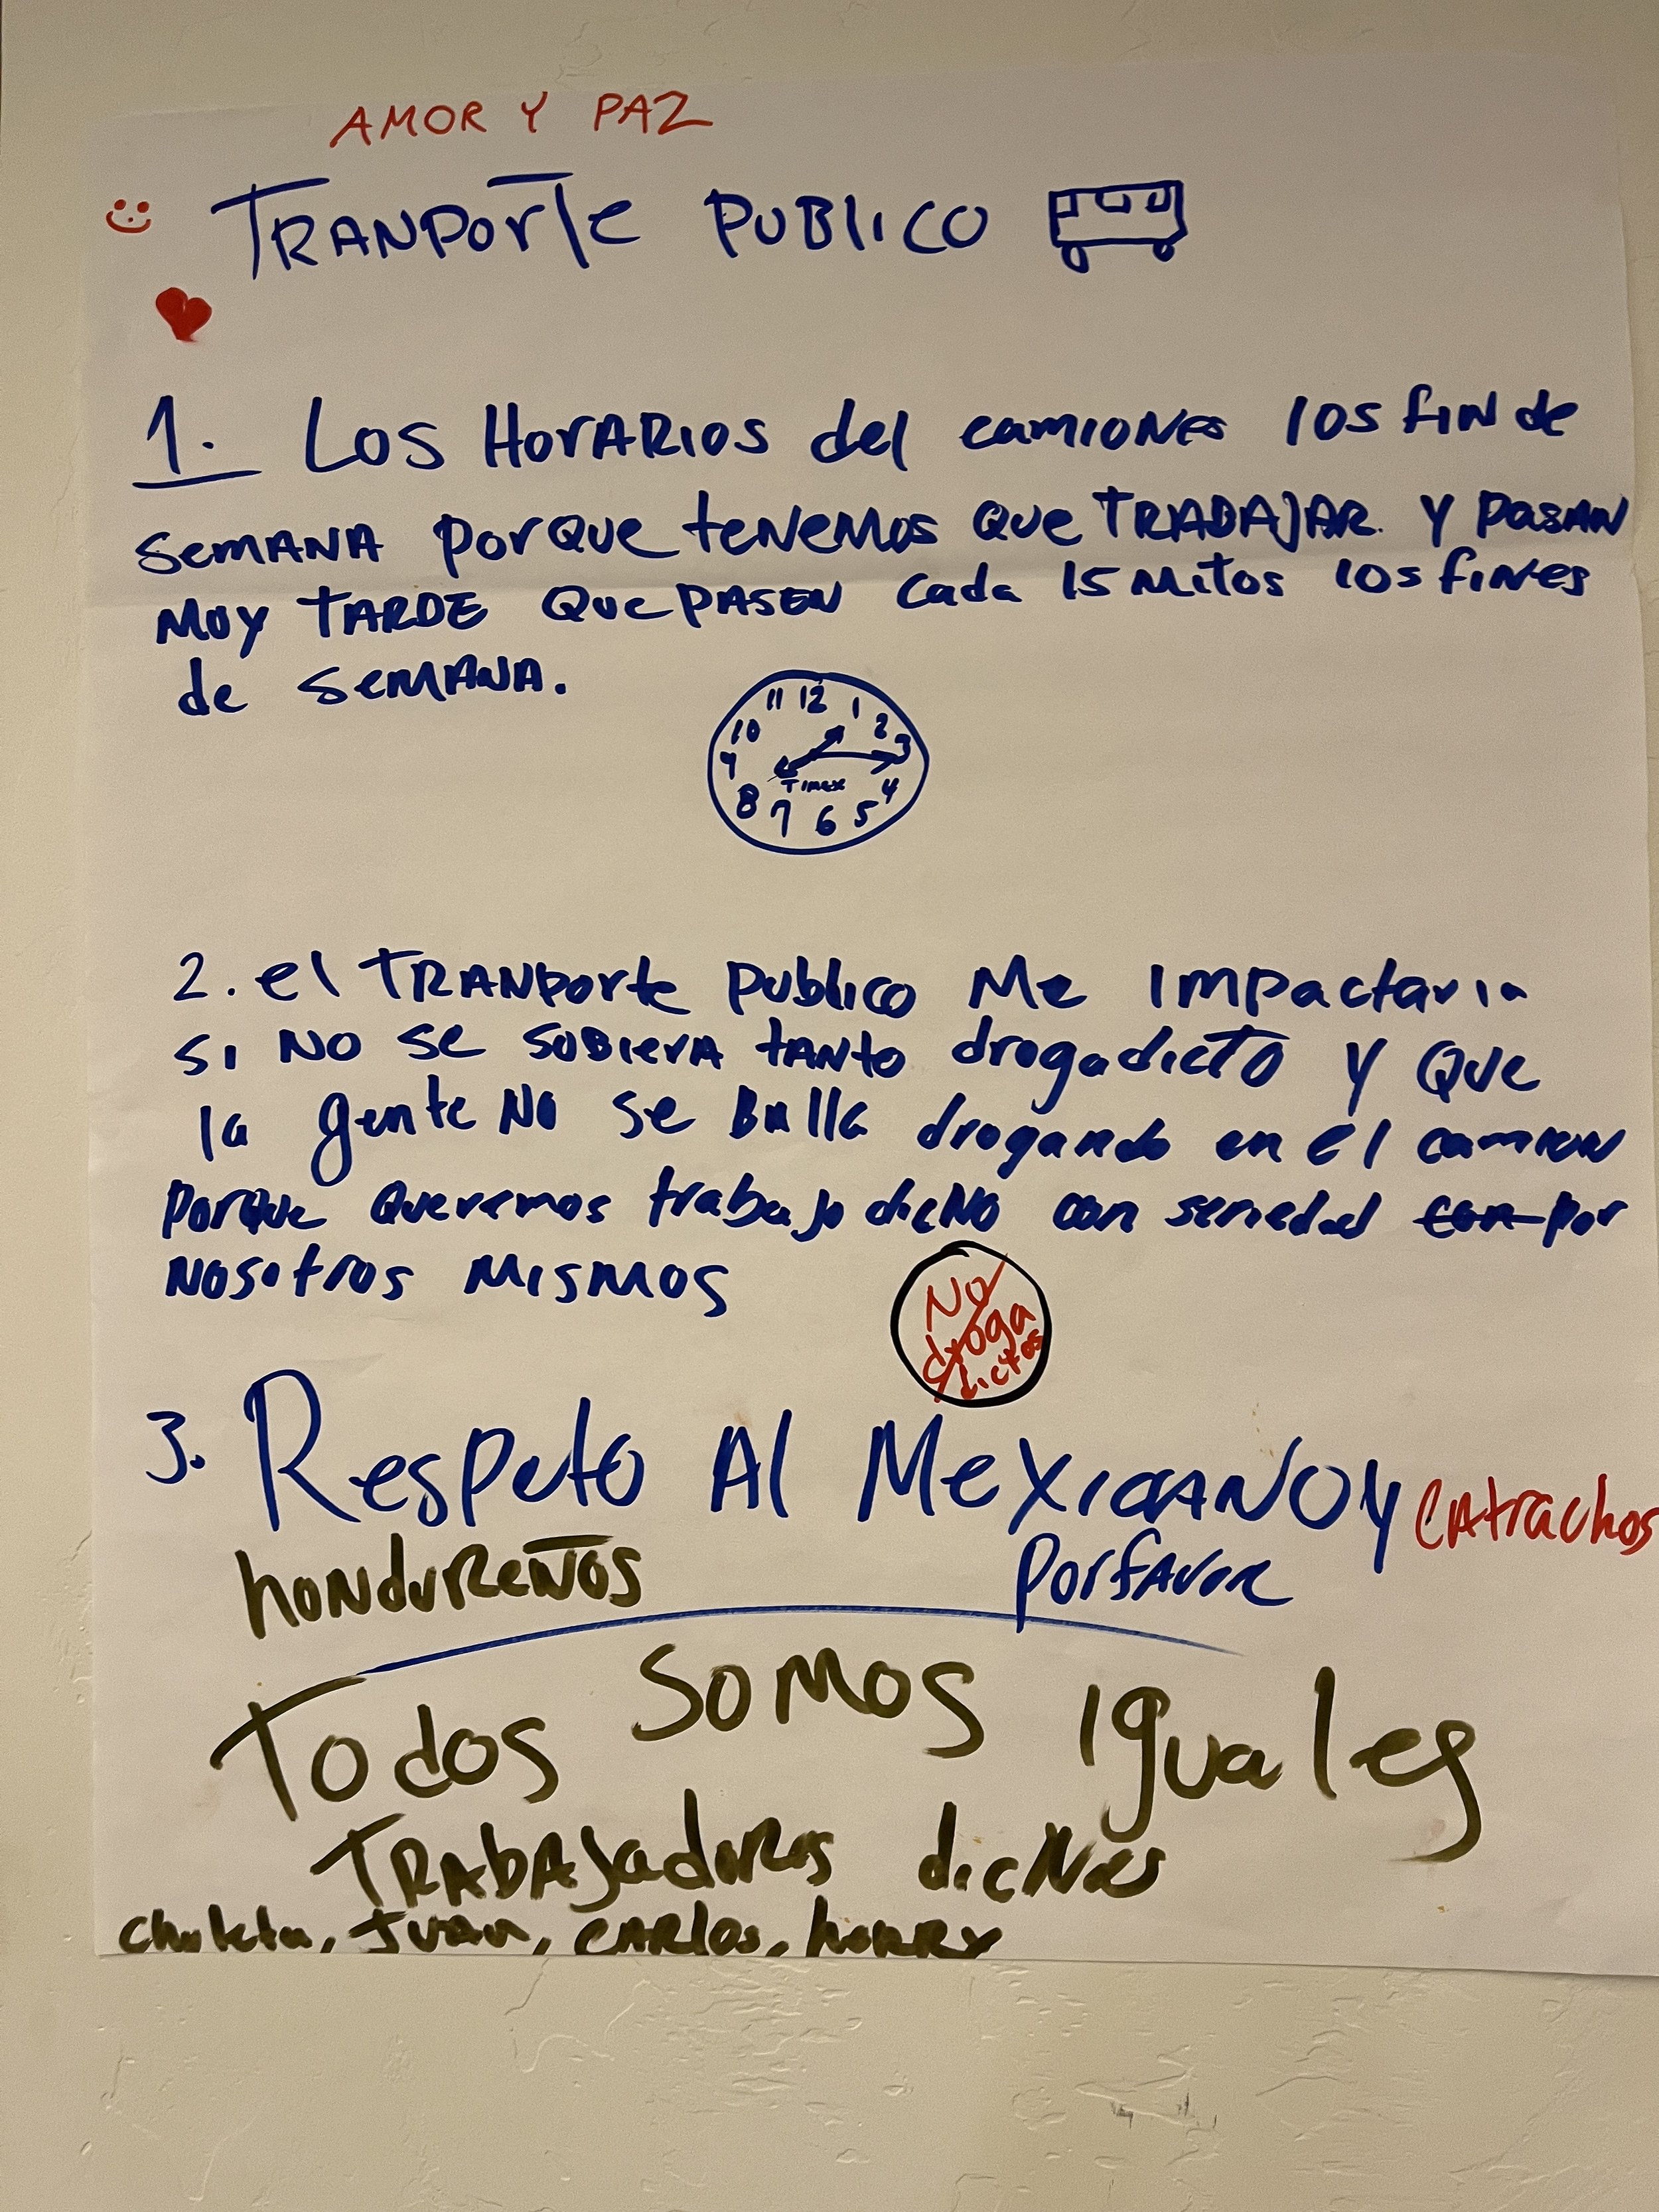 AMOR Y PAZ
TRANPORTE PUBLICO
1. Los HorARIOS del camiones los fin de
semANA porque teNemos que TRADAJAR. Y PasAN
MUY TARDE Que PASEN cada 15 Mitos los fines
de semANA.
11 12 1
10 2
9 3
Timex
8 4
7 6 5
2. el TRANPorte publico Me Impactaria
si NO se subierA tANto drogadicto Y Que
la gente NO se balla drogando en el camion
Porque Queremos trabajo dicNo con seriedad con por
NOSotros MISMOS
NO
droga
dictos
3. Respeto Al MexicANO Y CAtrachos
hondureños PorfAvor
Todos somos Iguales
TRAbAjadores dicNos
Chuleta, Juan, CARlos, heNRY